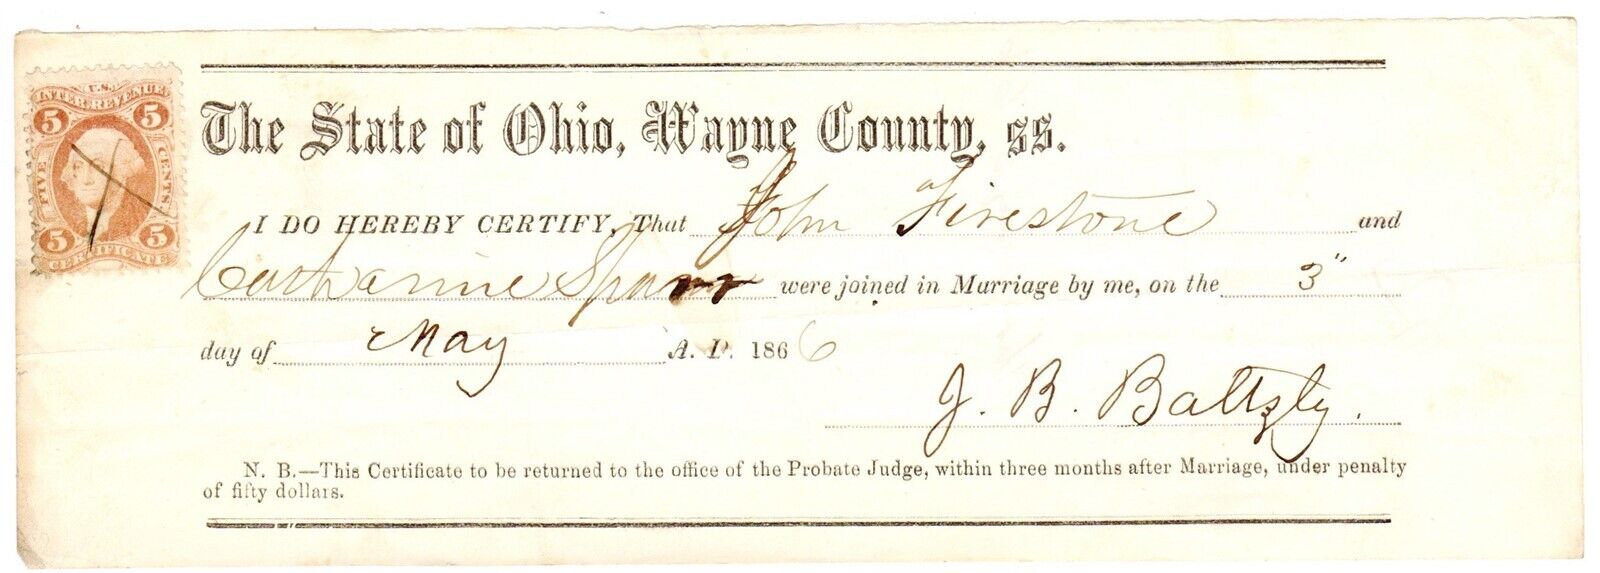 U.S.
INTER. REVENUE
5 5
FIVE CENTS.
5 5
CERTIFICATE
The State of Ohio, Wayne County, ss.
I DO HEREBY CERTIFY, That John Firestone and
Catharine were joined in Marriage by me, on the 3"
day of May A. D. 1866
J. B. Baltzly.
N. B.—This Certificate to be returned to the office of the Probate Judge, within three months after Marriage, under penalty
of fifty dollars.